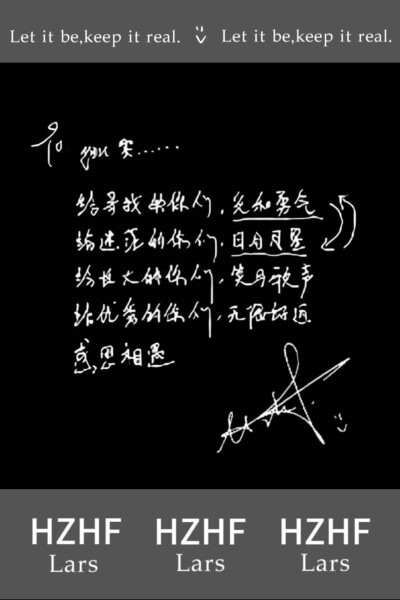 Let it be,keep it real. Let it be,keep it real.
To ……
给寻找的你们,光和勇气
给迷茫的你们,日月
给长大的你们,歌声
给优秀的你们,无限好运
感恩相遇
HZHF HZHF HZHF
Lars Lars Lars